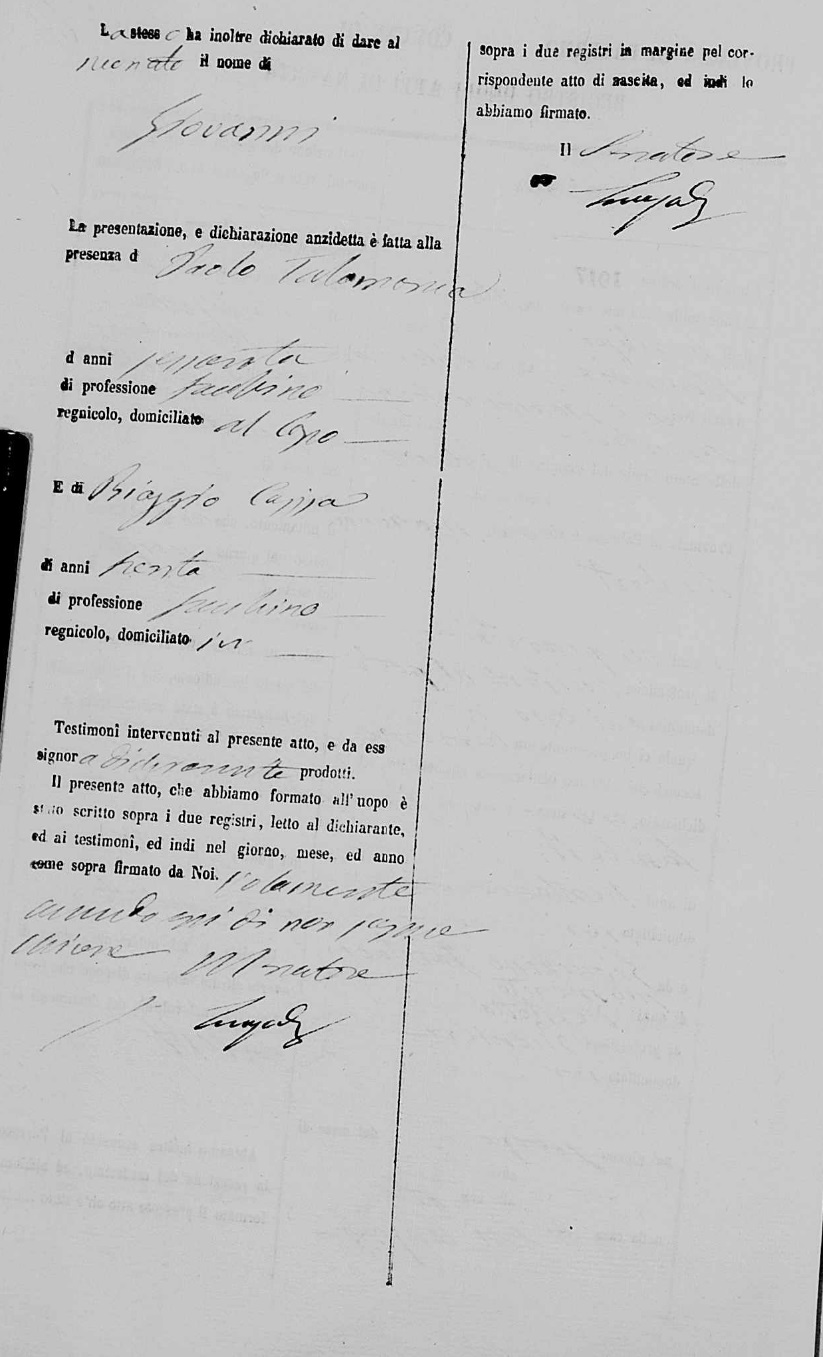 Lo stesso ha inoltre dichiarato di dare al
neonato il nome di
Giovanni
La presentazione, e dichiarazione anzidetta è fatta alla
presenza d Paolo Talamonia
d anni sessanta
di professione
regnicolo, domiciliato al Capo
E di Biaggio Cappa
di anni trenta
di professione
regnicolo, domiciliato ivi
Testimonî intervenuti al presente atto, e da ess
signor a dichiarante prodotti.
Il presente atto, che abbiamo formato all'uopo è
stato scritto sopra i due registri, letto al dichiarante,
ed ai testimonî, ed indi nel giorno, mese, ed anno
come sopra firmato da Noi. solamente
avendo essi di non sapere
scrivere Il Senatore
sopra i due registri in margine pel cor-
rispondente atto di nascita, ed indi lo
abbiamo firmato.
Il Senatore